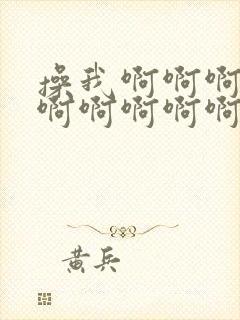 操我 啊啊啊
啊啊啊啊啊
黄兵